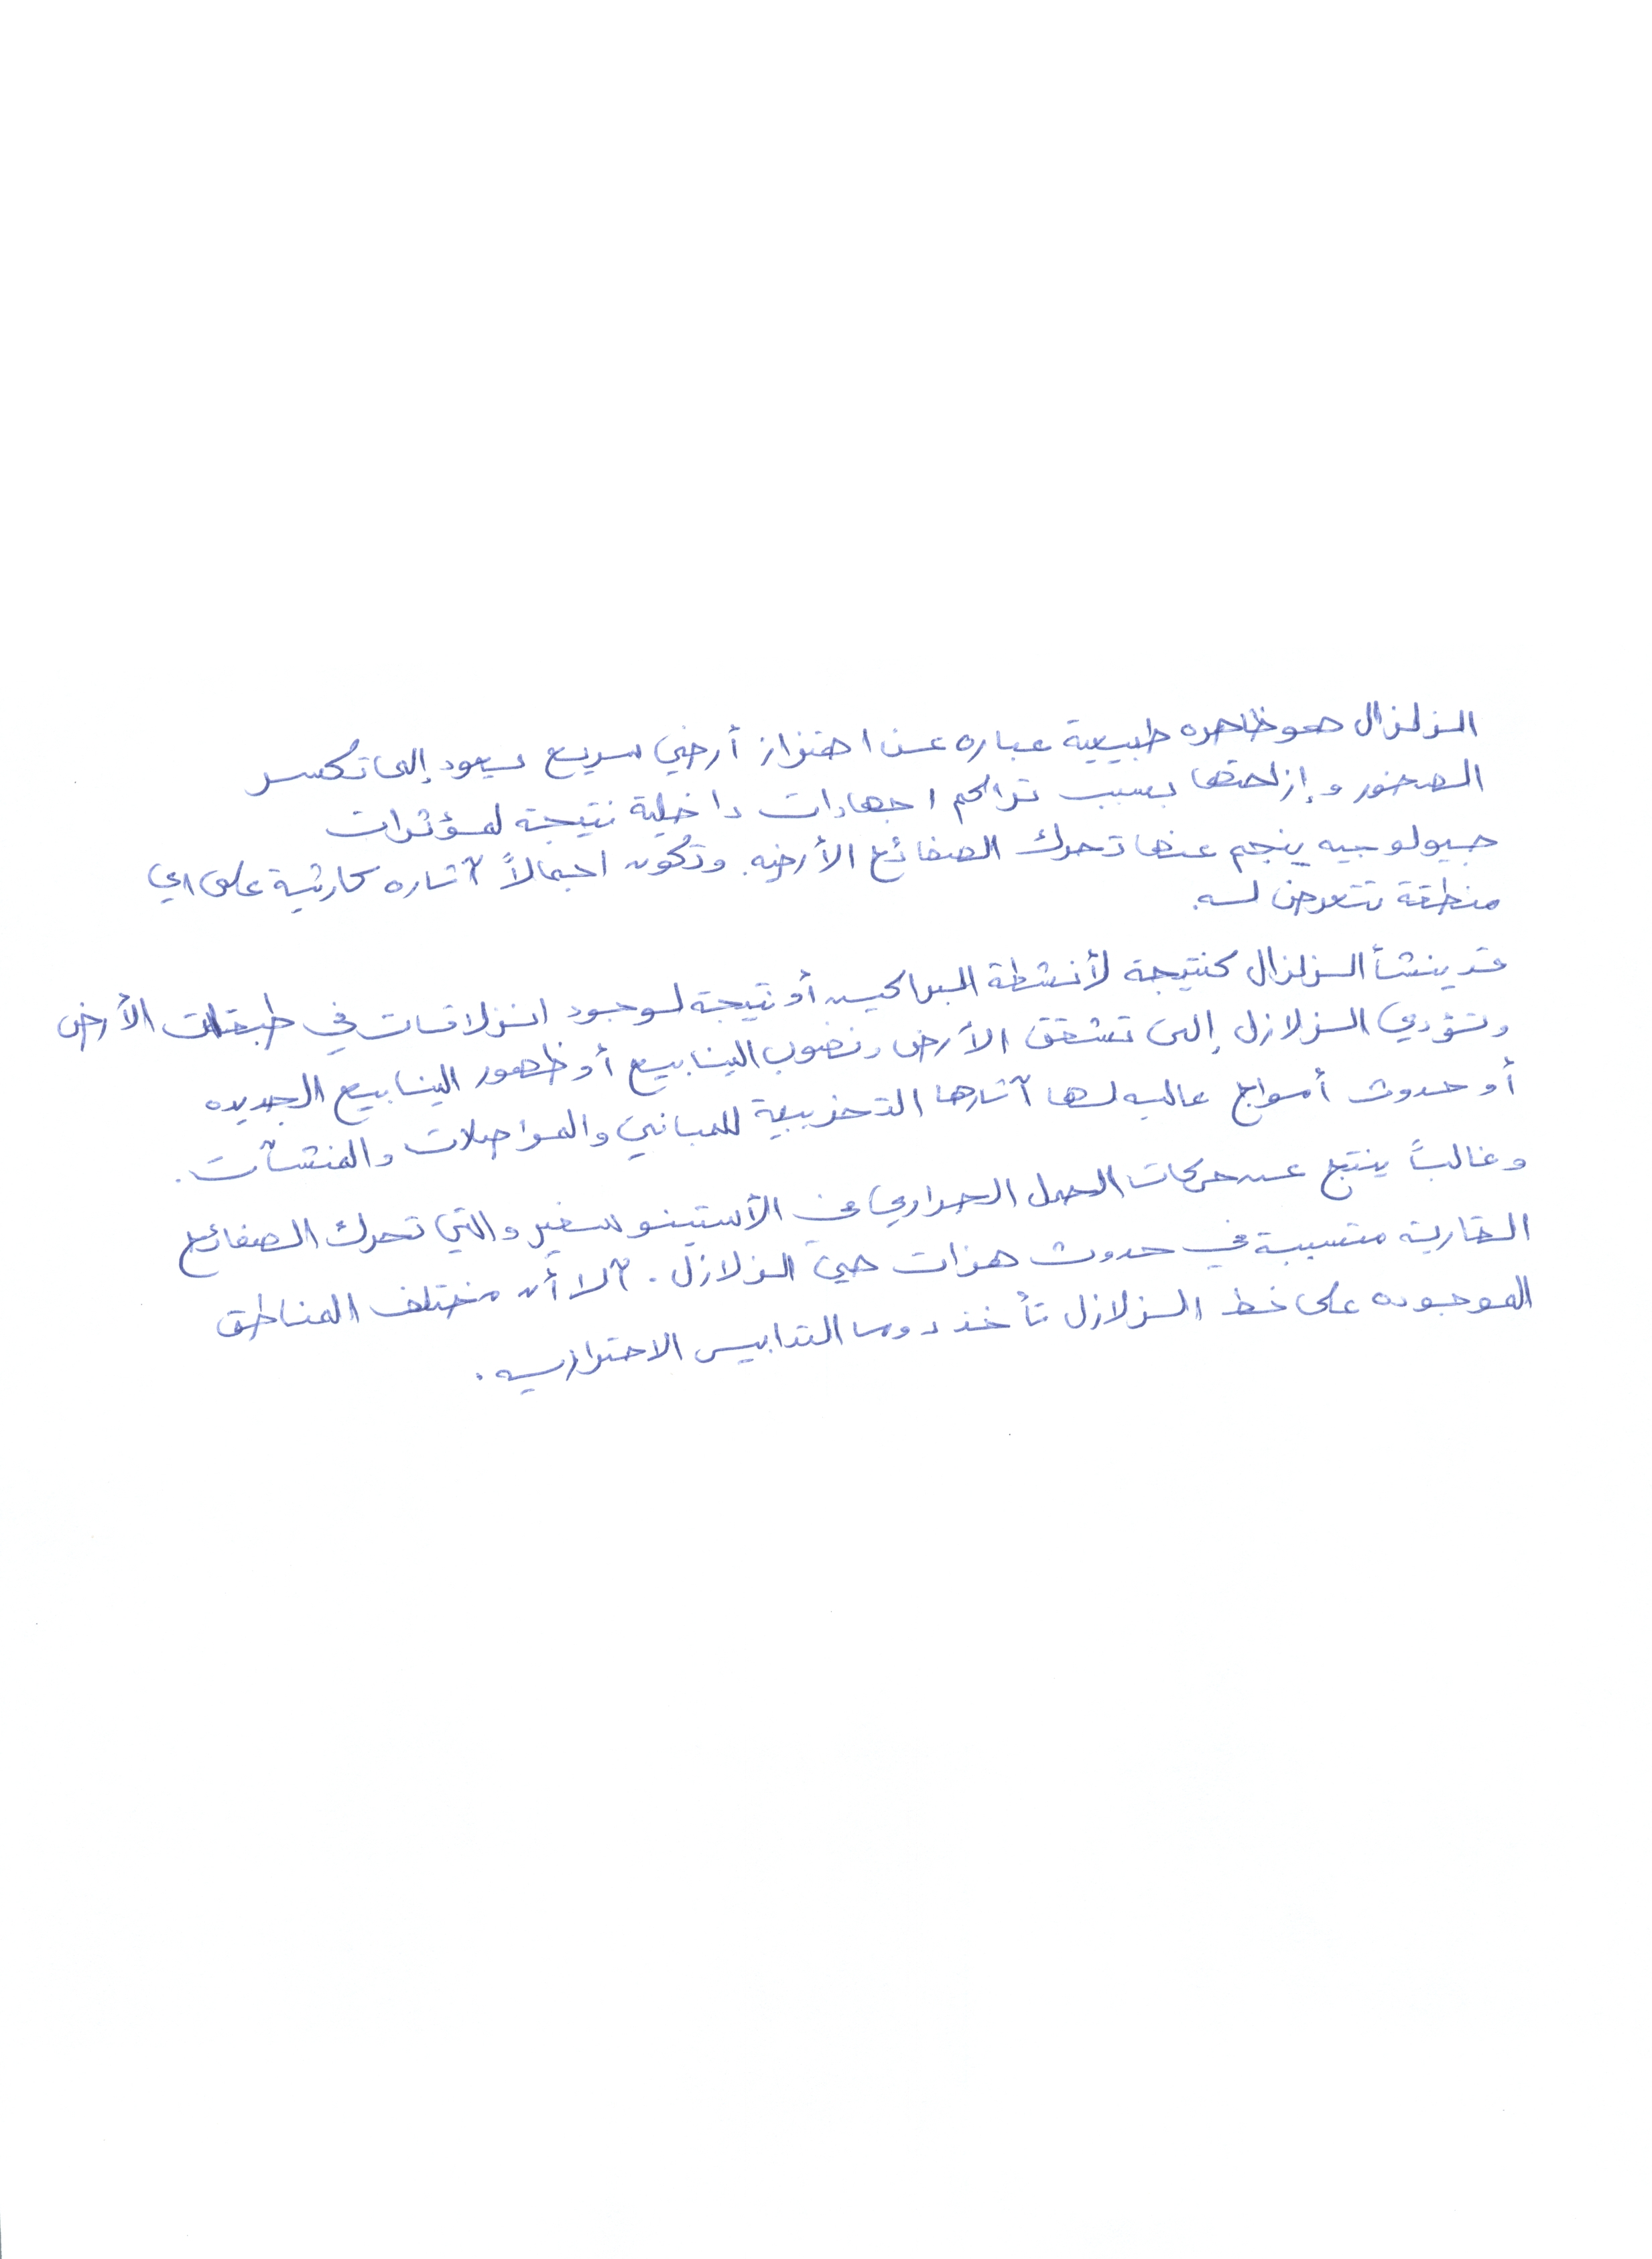 الزلزال هو ظاهره طبيعية عباره عن اهتزاز أرضي سريع يعود إلى تكسر
الصخور وإزاحتها بسبب تراكم اجهادات داخلية نتيجة لمؤثرات
جيولوجيه ينجم عنها تحرك الصفائح الأرضيه. وتكون اجمالاً آثاره كارثية على اي
منطقة تتعرض له.
قد ينشأ الزلزال كنتيجة لأنشطة البراكين أو نتيجة لوجود انزلاقات في طبقات الأرض
وتؤدي الزلازل إلى تشقق الأرض ونضوب الينابيع أو ظهور الينابيع الجديده
أو حدوث أمواج عاليه لها آثارها التخريبية للمباني والمواصلات والمنشآت.
وغالباً ينتج عن حركات الحمل الحراري في الأستينوسفير والتي تحرك الصفائح
القارية متسببة في حدوث هزات هي الزلازل. آلا أن مختلف المناطق
الموجوده على خط الزلازل تأخذ دوما التدابير الاحترازيه.